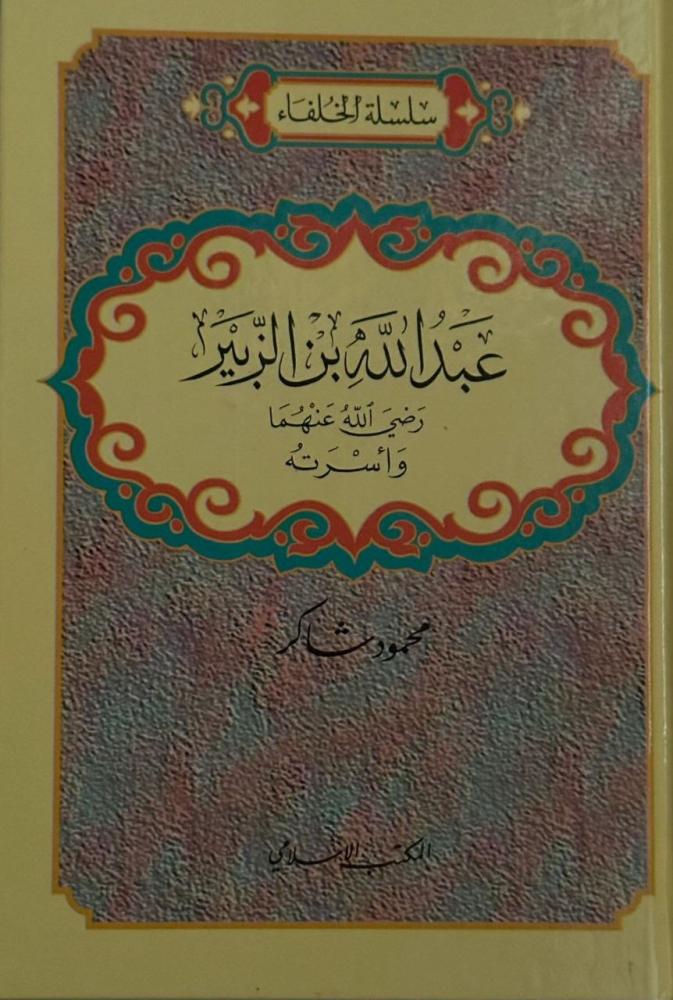 سلسلة الخلفاء
عَبْدُ اللَّهِ بْنُ الزُّبَيْرِ
رَضِيَ اللَّهُ عَنْهُمَا
وَأُسْرَتُهُ
محمود شاكر
المكتب الإسلامي